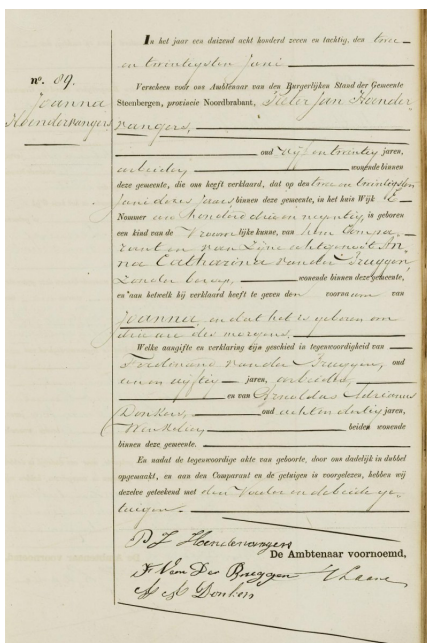 In het jaar een duizend acht honderd zeven en tachtig, den twee
en twintigsten Juni
n°. 89.
Joanna
Hoendervangers
Verscheen voor ons Ambtenaar van den Burgerlijken Stand der Gemeente
Steenbergen, provincie Noordbrabant, Pieter Jan Hoender-
vangers,
oud vijf en twintig jaren,
arbeider, wonende binnen
deze gemeente, die ons heeft verklaard, dat op den twee en twintigsten
Juni dezes jaars binnen deze gemeente, in het huis Wijk E
Nommer een honderd drie en negentig, is geboren
een kind van de Vrouwelijke kunne, van hem Compa-
rant en van zijne echtgenoot An-
na Catharina van der Bruggen,
zonder beroep, wonende binnen deze gemeente,
en aan hetwelk hij verklaard heeft te geven den voornaam van
Joanna en dat het is geboren om
drie ure des morgens.
Welke aangifte en verklaring zijn geschied in tegenwoordigheid van
Ferdinand van der Bruggen, oud
een en vijftig jaren, arbeider,
en van Arnoldus Adrianus
Donkers, oud acht en dertig jaren,
Winkelier, beiden wonende
binnen deze gemeente.
En nadat de tegenwoordige akte van geboorte, door ons dadelijk in dubbel
opgemaakt, en aan den Comparant en de getuigen is voorgelezen, hebben wij
dezelve geteekend met den Vader en de beide ge-
tuigen.
P J Hoendervangers
De Ambtenaar voornoemd,
F. Van Der Bruggen
A A Donkers